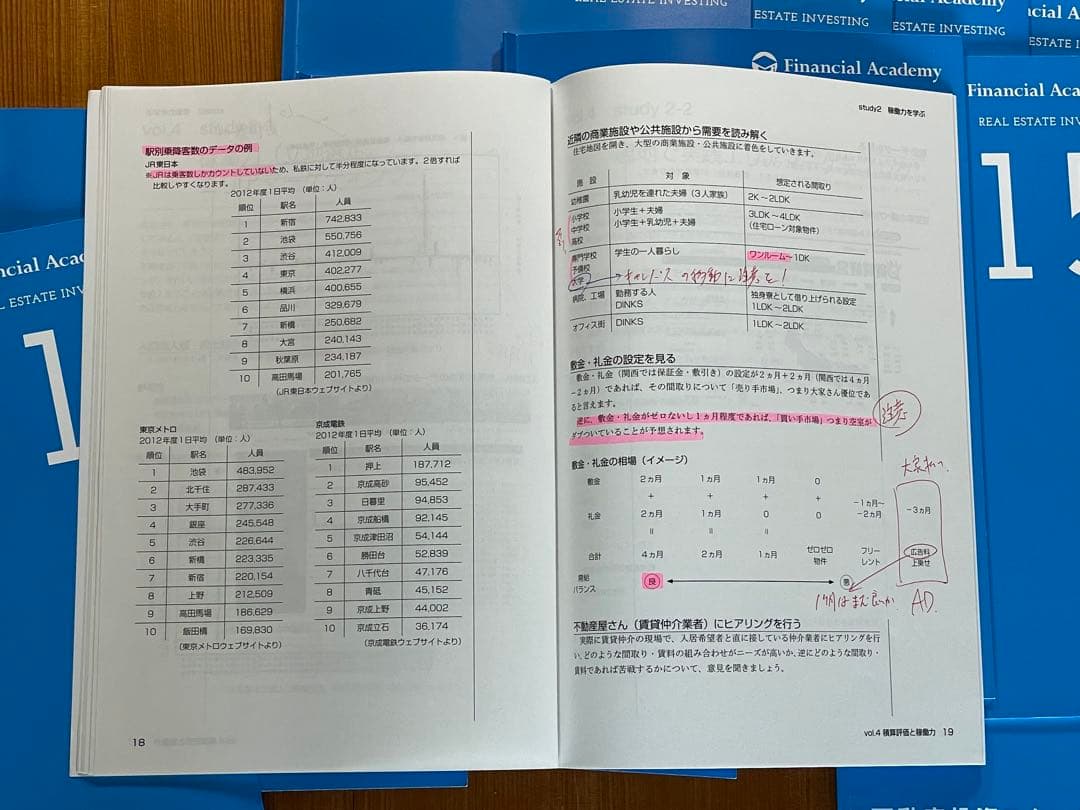 REAL ESTATE INVESTING
ESTATE INVESTING
REAL ESTATE INVESTING
ncial A
ESTATE IN
Financial Academy
Financial Aca
REAL ESTATE INVESTIN
15
ncial Acad
REAL ESTATE INV
1
1
駅別乗降客数のデータの例
JR東日本
※JRは乗客数しかカウントしていないため、私鉄に対して半分程度になっています。2倍すれば
比較しやすくなります。
2012年度1日平均 (単位:人)
順位 駅名 人員
1 新宿 742,833
2 池袋 550,756
3 渋谷 412,009
4 東京 402,277
5 横浜 400,655
6 品川 329,679
7 新橋 250,682
8 大宮 240,143
9 秋葉原 234,187
10 高田馬場 201,765
(JR東日本ウェブサイトより)
東京メトロ
2012年度1日平均 (単位:人)
順位 駅名 人員
1 池袋 483,952
2 北千住 287,433
3 大手町 277,336
4 銀座 245,548
5 渋谷 226,644
6 新橋 223,335
7 新宿 220,154
8 上野 212,509
9 高田馬場 186,629
10 飯田橋 169,830
(東京メトロウェブサイトより)
京成電鉄
2012年度1日平均 (単位:人)
順位 駅名 人員
1 押上 187,712
2 京成高砂 95,452
3 日暮里 94,853
4 京成船橋 92,145
5 京成津田沼 54,144
6 勝田台 52,839
7 八千代台 47,176
8 青砥 45,152
9 京成上野 44,002
10 京成立石 36,174
(京成電鉄ウェブサイトより)
18
study2 稼働力を学ぶ
近隣の商業施設や公共施設から需要を読み解く
住宅地図を開き、大型の商業施設・公共施設に着色をしていきます。
施設 対象 想定される間取り
幼稚園 乳幼児を連れた夫婦(3人家族) 2K〜2LDK
小学校 小学生+夫婦 3LDK〜4LDK
中学校 小学生+乳幼児+夫婦 (住宅ローン対象物件)
高校
専門学校 学生の一人暮らし ワンルーム〜1DK
予備校
大学 キャンパスの移動に注意を!
病院、工場 勤務する人 独身寮として借り上げられる設定
DINKS 1LDK〜2LDK
オフィス街 DINKS 1LDK〜2LDK
敷金・礼金の設定を見る
敷金・礼金(関西では保証金・敷引き)の設定が2ヵ月+2ヵ月(関西では4ヵ月
−2ヵ月)であれば、その間取りについて「売り手市場」、つまり大家さん優位であ
ると言えます。
逆に、敷金・礼金がゼロないし1ヵ月程度であれば、「買い手市場」つまり空室が
ダブついていることが予想されます。
注意
敷金・礼金の相場(イメージ)
敷金 2ヵ月 1ヵ月 1ヵ月 0
+ + + + −1ヵ月〜
礼金 2ヵ月 1ヵ月 0 0 −2ヵ月 −3ヵ月
= = =
合計 4ヵ月 2ヵ月 1ヵ月 ゼロゼロ物件 フリーレント 広告料上乗せ
需給
バランス 良 悪
1ヶ月はまだ良いか AD.
不動産屋さん(賃貸仲介業者)にヒアリングを行う
実際に賃貸仲介の現場で、入居希望者と直に接している仲介業者にヒアリングを行
い、どのような間取り・賃料の組み合わせがニーズが高いか、逆にどのような間取り・
賃料であれば苦戦するかについて、意見を聞きましょう。
vol.4 積算評価と稼働力 19